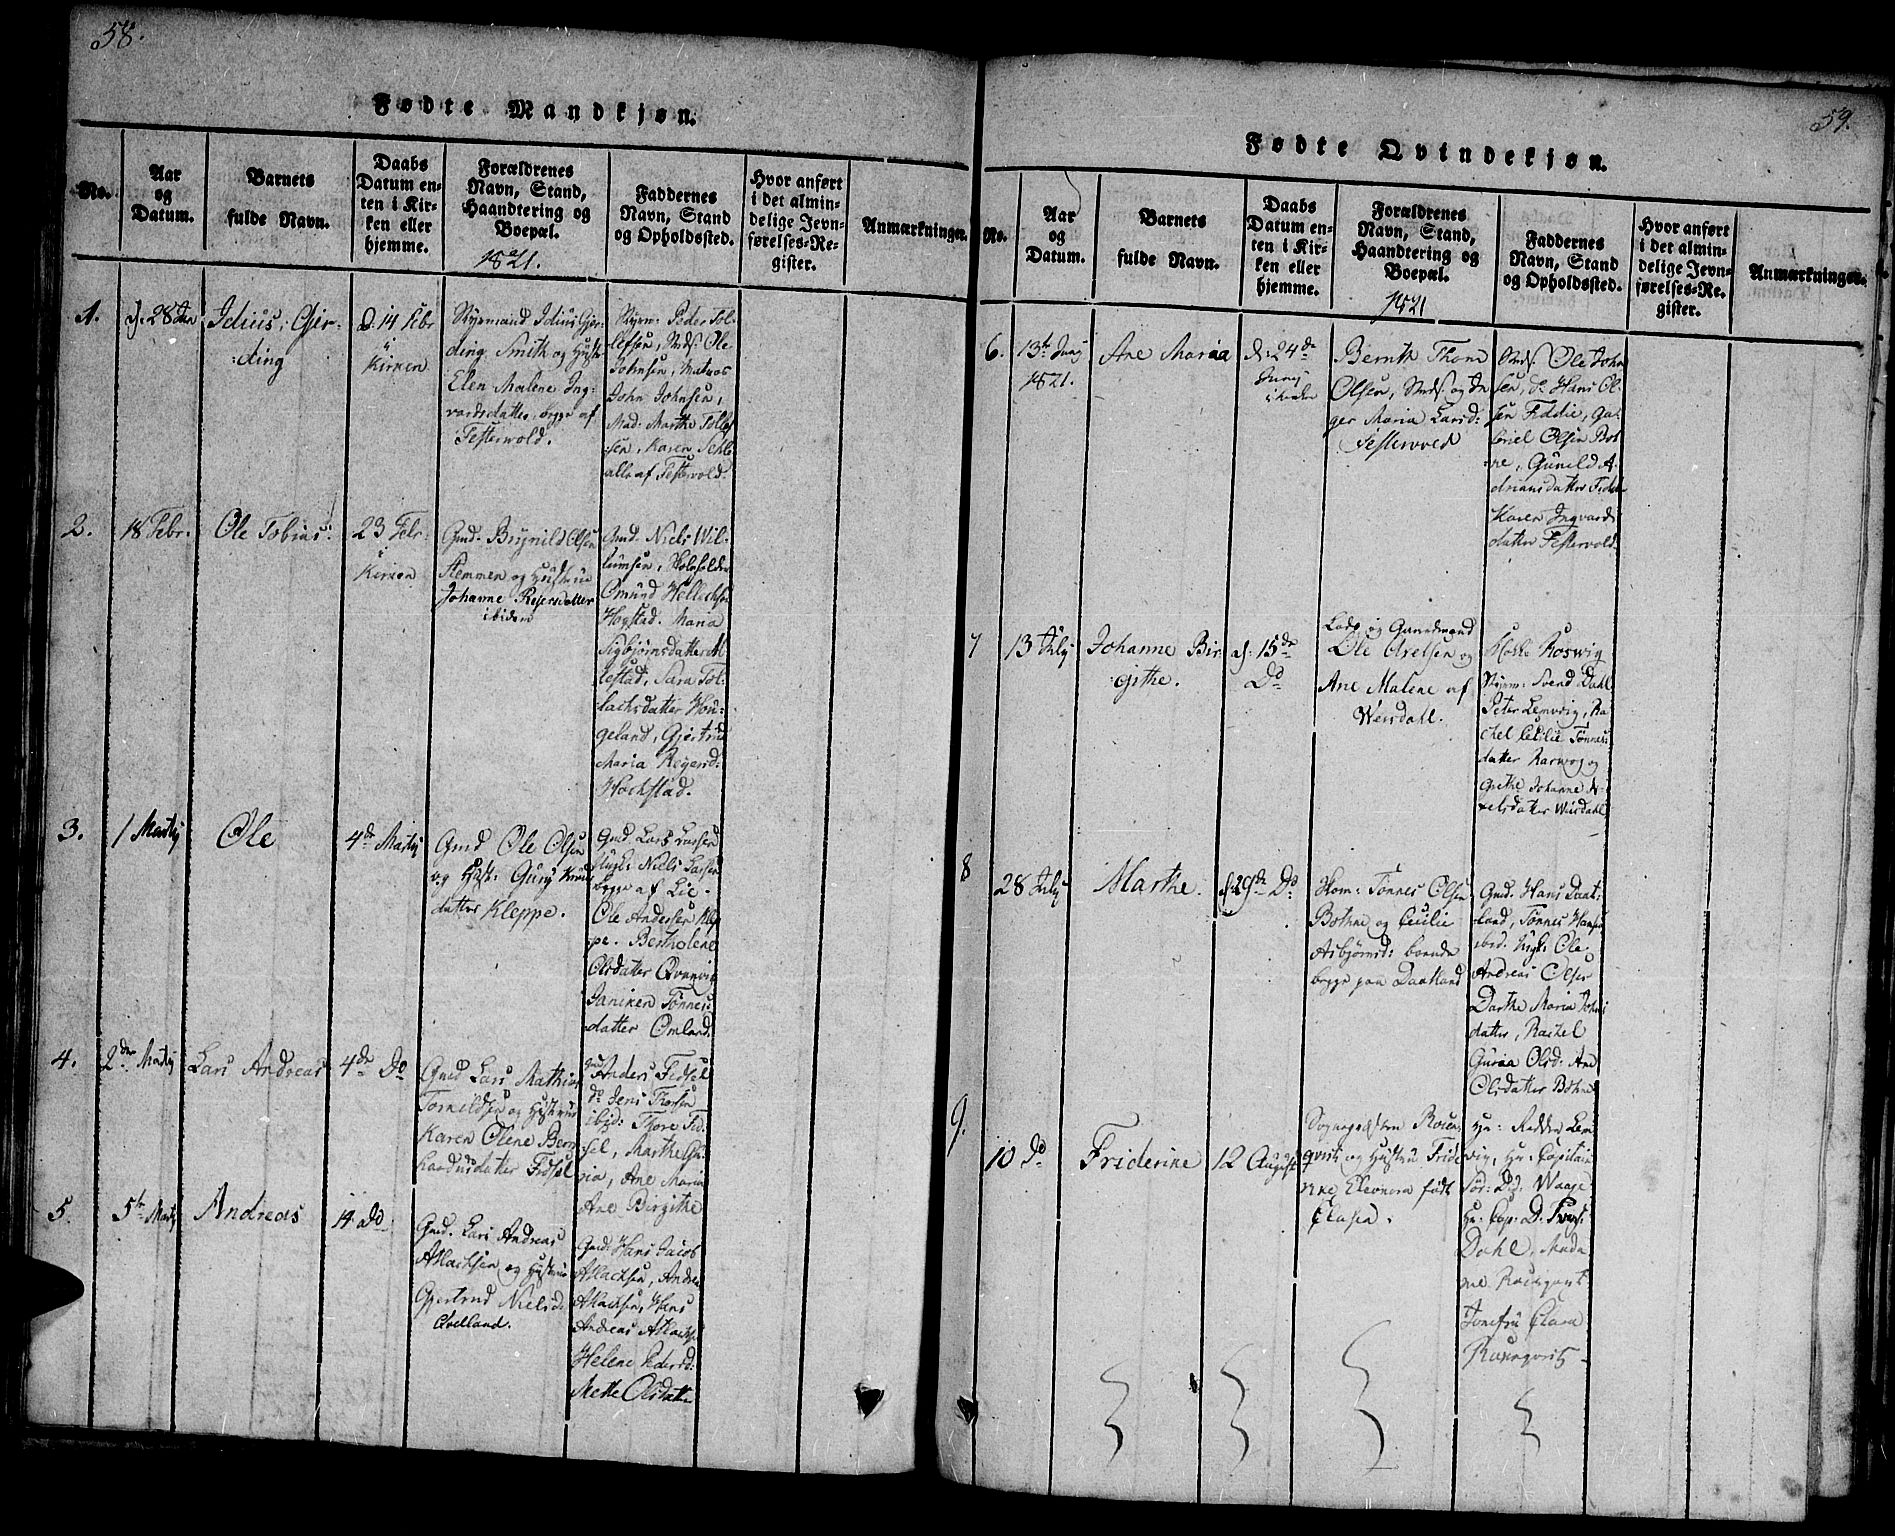 58.
Fødte Mandkjøn.
No.
Aar
og
Datum.
Barnets
fulde Navn.
Daabs
Datum en-
ten i Kir-
ken eller
hjemme.
Forældrenes
Navn, Stand,
Haandtering og
Boepæl.
1821.
Faddernes
Navn, Stand
og Opholdssted.
Hvor anført
i det almin-
delige Jevn-
førelses-Re-
gister.
Anmærkninger.
1.
d. 28 Jan
Idius Gjer-
ding
d. 14 Febr
i
Kirken
Styrmand Idius Gjer-
ding Smith og Hustr
Elen Malene Ing-
vardsdatter, begge af
Festervold.
Styrm: Peder Tol-
lefsen, Ole
Johnsen, Matros
John Johnsen,
Mad: Marthe Tollef
sen, Karen
alle af Festervold.
2.
18 Febr.
Ole Tobias.
23 Febr:
i
Kirken
Gmd. Brynild Olsen
Stemmen og Hustrue
Johanne Reiersdatter
ibidem
Gmd. Niels Wil-
lumsen, Skoleholder
Omund Hellachsen
Hogstad. Maria
Sigbjørnsdatter
lestad, Sara Tol-
lachsdatter Hou-
geland, Gjertrud
Maria Reyersd:
Hochstad.
3.
1 Martij
Ole
4de Martij
Gmd Ole Olsen
og Hust: Gurj Knud
datter Kleppe.
Gmd Lars Larsen
Ungk: Niels Larsen
begge af Lie.
Ole Andersen Klep
pe. Bertholene
Olsdatter Qvanvig
Janiken Tønnes-
datter Omland.
4.
2den Martij
Lars Andreas
4de Do
Gmd Lars Mathias
Torkildsen og Hustrue
Karen Olene Bern
hardusdatter Fidsel
Gmd Anders Fidsel
do Jens Thorsen
ibid: Thore Fid-
sel, Marthe Gu-
ria, Ane Maria
Ane Birgithe
5.
5te Martij
Andreas
14 do
Gmd. Lars Andreas
Atlachsen og Hustrue
Gjertrud Nielsd:
Qvelland.
Gmd: Hans Jacob
Atlachsen, Andreas
Atlachsen, Hans
Andreas Atlachs
Helene Pedersd:
Mette Olsdatter
59.
Fødte Qvindekjøn.
No.
Aar
og
Datum.
Barnets
fulde Navn.
Daabs
Datum en-
ten i Kir-
ken eller
hjemme.
Forældrenes
Navn, Stand,
Haandtering og
Boepæl.
1821
Faddernes
Navn, Stand
og Opholdssted.
Hvor anført
i det almin-
delige Jevn-
førelses-Re-
gister.
Anmærkninger.
6.
13de Junj
1821.
Ane Maria
d: 24de
Junij
i Kirken
Bernth Thom
Olsen, og In
ger Maria Larsd:
Festervold
Ole John
sen, do Hans Ol-
sen Fiddie, Ga-
briel Olsen Bot
ne, Gunild A-
driansdatter
Karen Ingvards
datter Festervold.
7
13 July
Johanne Bir-
githe.
d: 15de
Do
Lods og Gaardmand
Ole Axelsen og
Ane Malene af
Weisdahl.
Roswig
Styrm: Svend Dahl
Peter Lemvig, Ra
chel Cecilie Tønnes
datter Karwog og
Grethe Johanne A-
xelsdatter Weisdahl
8
28 July
Marthe.
d: 29de Do
Hom: Tønnes Olsen
Bothne og Cecilie
Asbjørnsd: boende
begge paa Daatland
Gmd: Hans Daat-
land, Tønnes Hans
ibid. Ungk: Ole
Andreas Olsen
Dorthe Maria Johns
datter, Rachel
Guria Olsd: Ane
Olsdatter Bothne
9.
10 do
Friderine
12 August
Sognepresten Rosen-
qvist og Hustru Fride
rike Eleonora født
Clasen.
Hr: Redder Lem
vig, Hr: Capitain
Sør: D: Waage
Hr: Cap: D.
Dahl, Mada
me
Jomfru Clara
Rosenqvist